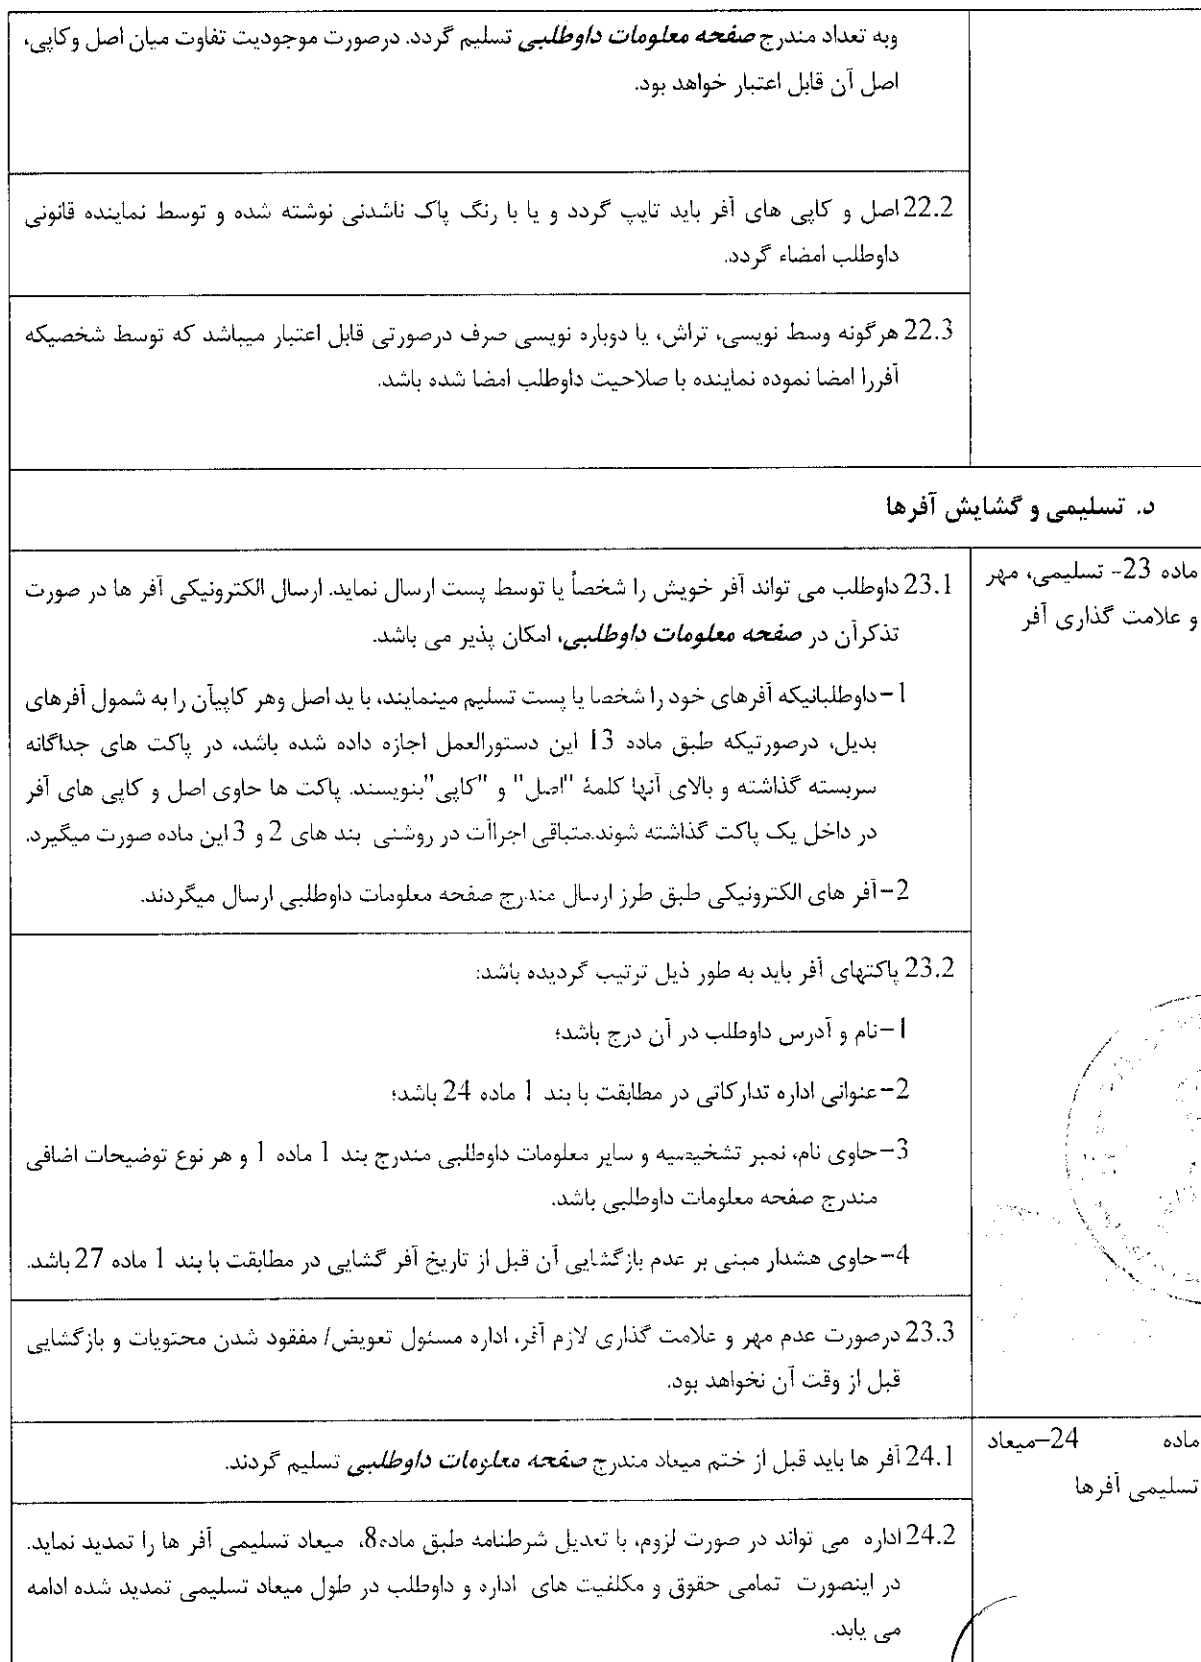 وبه تعداد مندرج صفحه معلومات داوطلبی تسلیم گردد. درصورت موجودیت تفاوت میان اصل وکاپی،
اصل آن قابل اعتبار خواهد بود.
22.2 اصل و کاپی های آفر باید تایپ گردد و یا با رنگ پاک ناشدنی نوشته شده و توسط نماینده قانونی
داوطلب امضاء گردد.
22.3 هرگونه وسط نویسی، تراش، یا دوباره نویسی صرف درصورتی قابل اعتبار میباشد که توسط شخصیکه
آفررا امضا نموده نماینده با صلاحیت داوطلب امضا شده باشد.
د. تسلیمی و گشایش آفرها
ماده 23- تسلیمی، مهر
و علامت گذاری آفر
23.1 داوطلب می تواند آفر خویش را شخصاً یا توسط پست ارسال نماید. ارسال الکترونیکی آفر ها در صورت
تذکرآن در صفحه معلومات داوطلبی، امکان پذیر می باشد.
1- داوطلبانیکه آفرهای خود را شخصا یا پست تسلیم مینمایند، با ید اصل وهر کاپیآن را به شمول آفرهای
بدیل، درصورتیکه طبق ماده 13 این دستورالعمل اجازه داده شده باشد، در پاکت های جداگانه
سربسته گذاشته و بالای آنها کلمۀ "اصل" و "کاپی"بنویسند. پاکت ها حاوی اصل و کاپی های آفر
در داخل یک پاکت گذاشته شوند.متباقی اجراآت در روشنی بند های 2 و 3 این ماده صورت میگیرد.
2- آفر های الکترونیکی طبق طرز ارسال مندرج صفحه معلومات داوطلبی ارسال میگردند.
23.2 پاکتهای آفر باید به طور ذیل ترتیب گردیده باشد:
1- نام و آدرس داوطلب در آن درج باشد؛
2- عنوانی اداره تدارکاتی در مطابقت با بند 1 ماده 24 باشد؛
3- حاوی نام، نمبر تشخیصیه و سایر معلومات داوطلبی مندرج بند 1 ماده 1 و هر نوع توضیحات اضافی
مندرج صفحه معلومات داوطلبی باشد.
4- حاوی هشدار مبنی بر عدم بازگشایی آن قبل از تاریخ آفر گشایی در مطابقت با بند 1 ماده 27 باشد.
23.3 درصورت عدم مهر و علامت گذاری لازم آفر، اداره مسئول تعویض/ مفقود شدن محتویات و بازگشایی
قبل از وقت آن نخواهد بود.
ماده 24–میعاد
تسلیمی آفرها
24.1 آفر ها باید قبل از ختم میعاد مندرج صفحه معلومات داوطلبی تسلیم گردند.
24.2 اداره می تواند در صورت لزوم، با تعدیل شرطنامه طبق ماده8، میعاد تسلیمی آفر ها را تمدید نماید.
در اینصورت تمامی حقوق و مکلفیت های اداره و داوطلب در طول میعاد تسلیمی تمدید شده ادامه
می یابد.